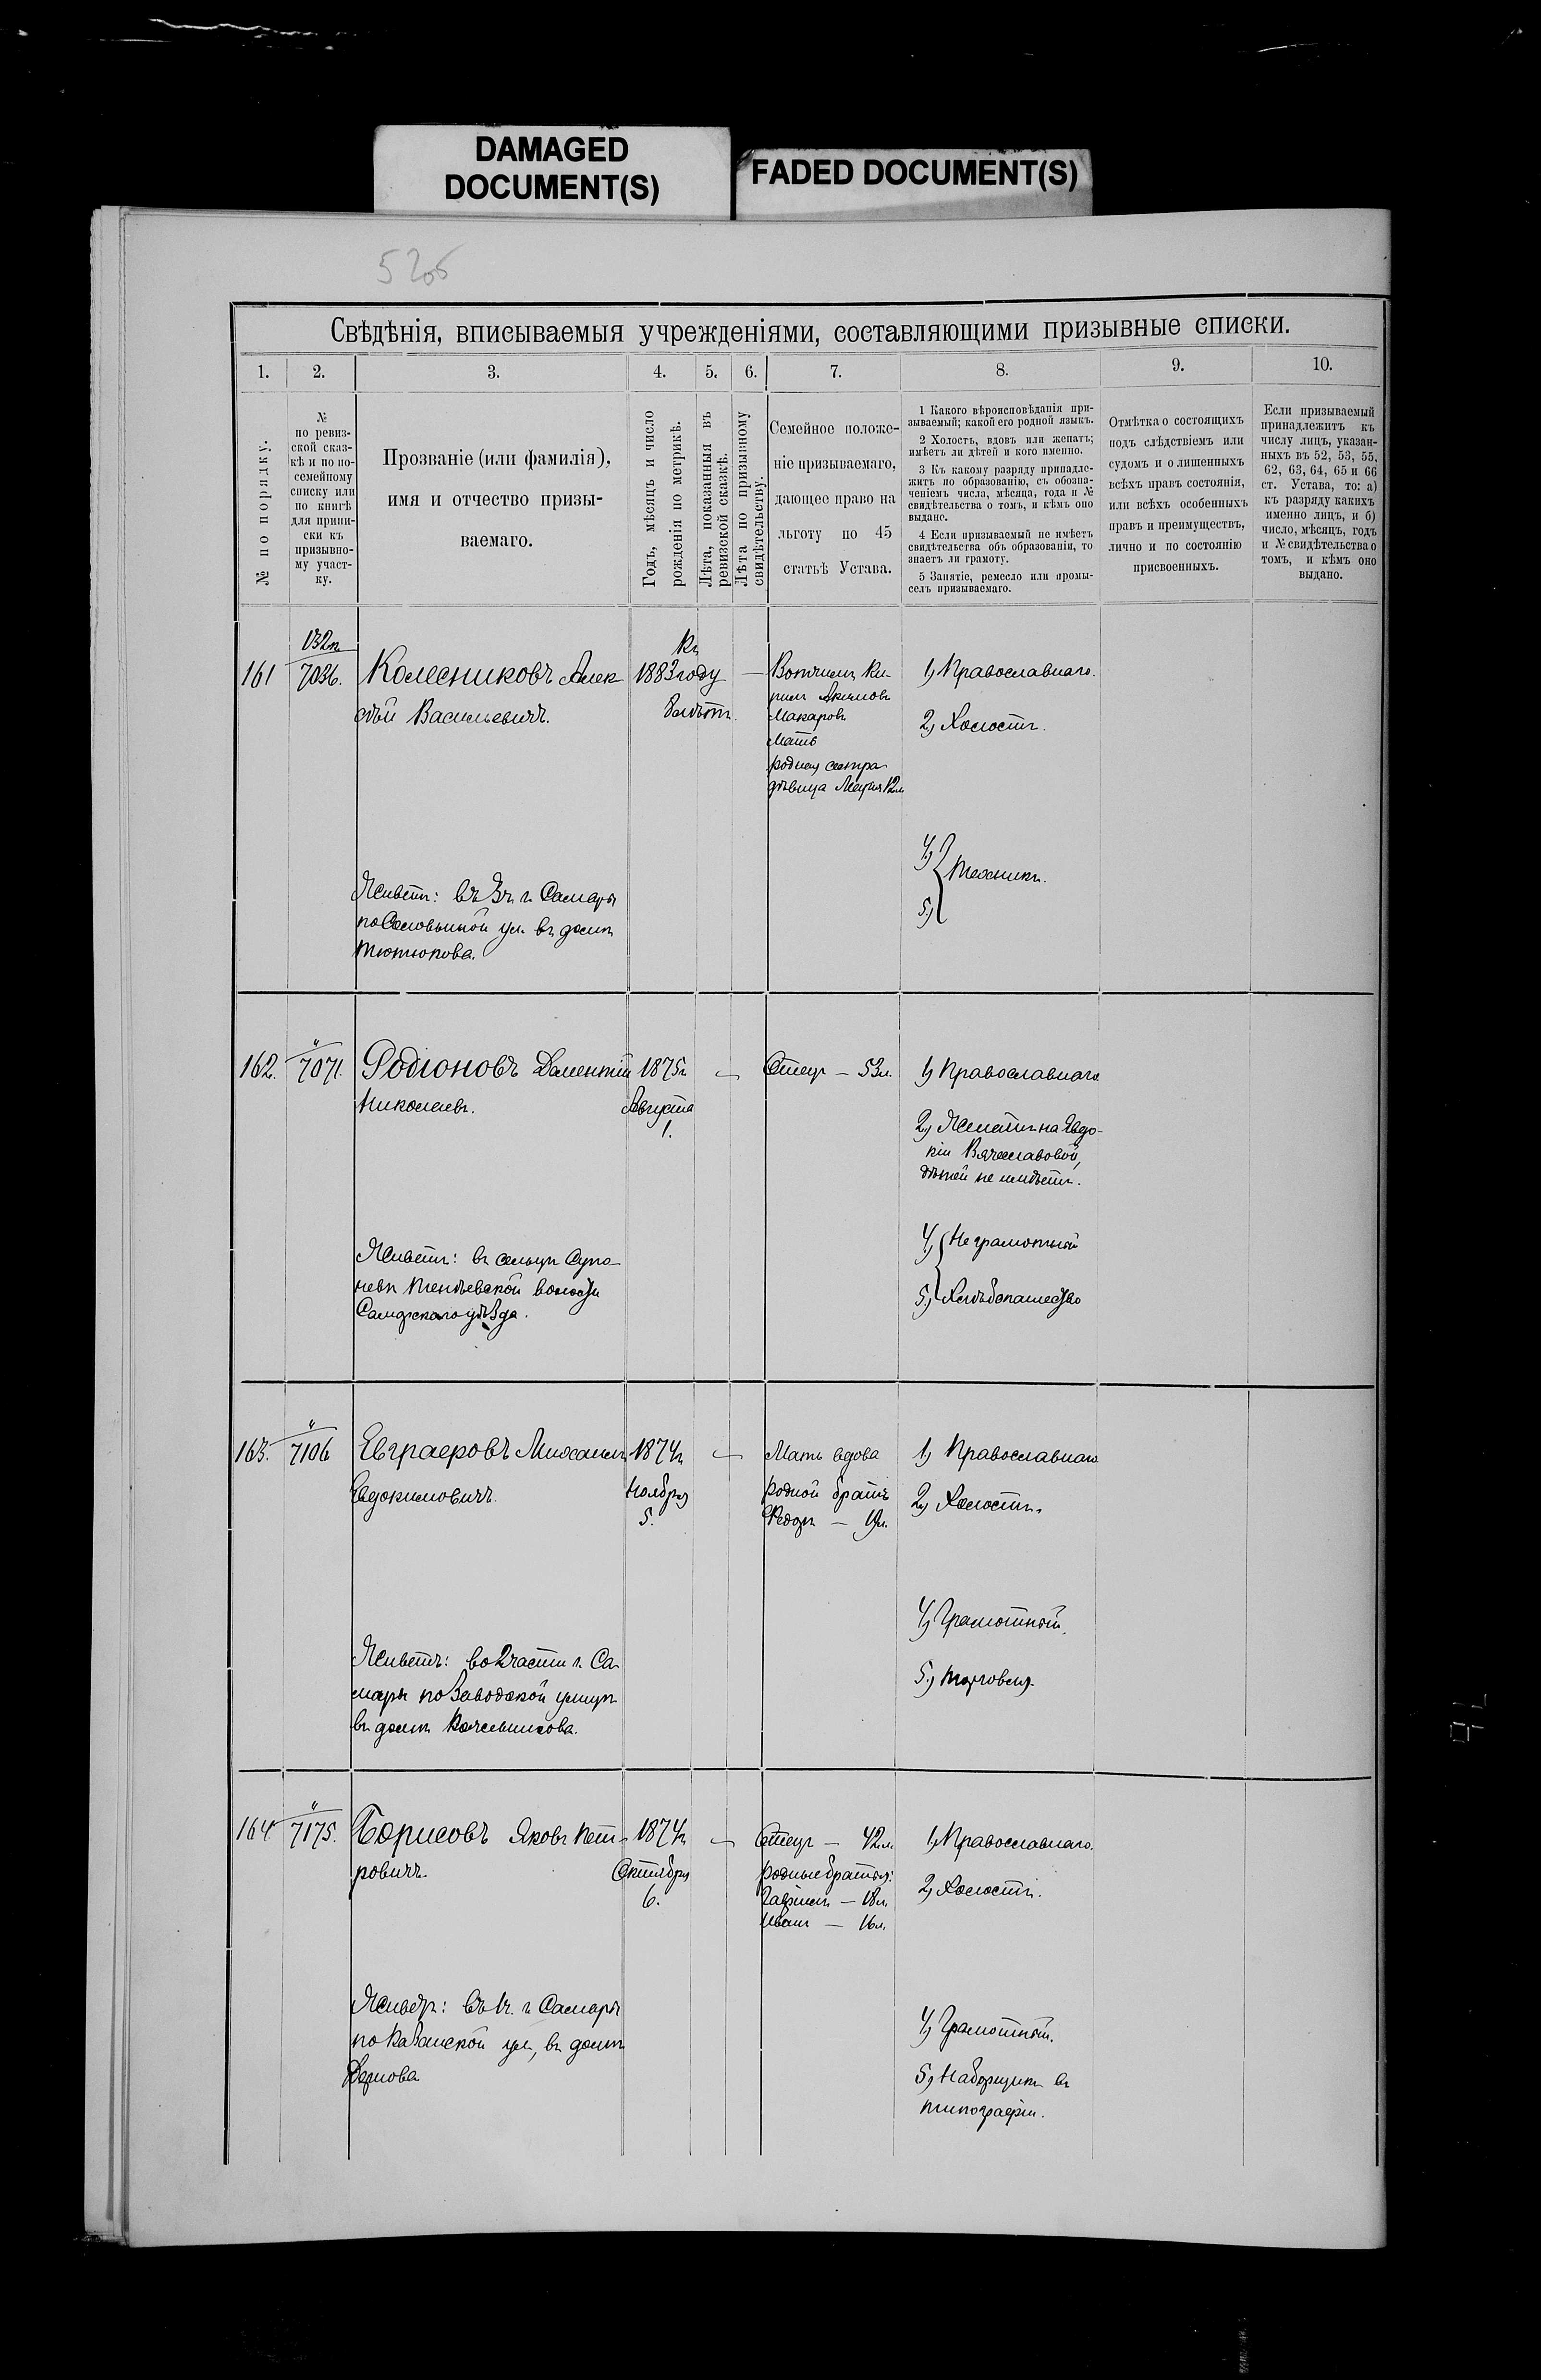 DAMAGED
DOCUMENT(S)
FADED DOCUMENT(S)
Свѣдѣнія, вписываемыя учрежденіями, составляющими призывные списки.
1. 2. 3. 4. 5. 6. 7. 8. 9. 10.
№ по порядку.
№
по ревиз-
ской сказ-
кѣ и по по-
семейному
списку или
по книгѣ
для припи-
ски къ
призывно-
му участ-
ку.
Прозваніе (или фамилія),
имя и отчество призы-
ваемаго.
Годъ, мѣсяцъ и число
рожденія по метрикѣ.
Лѣта, показанныя въ
ревизской сказкѣ.
Лѣта по призывному
свидѣтельству.
Семейное положе-
ніе призываемаго,
дающее право на
льготу по 45
статьѣ Устава.
1 Какого вѣроисповѣданія при-
зываемый; какой его родной языкъ.
2 Холостъ, вдовъ или женатъ;
имѣетъ ли дѣтей и кого именно.
3 Къ какому разряду принадле-
житъ по образованію, съ обозна-
ченіемъ числа, мѣсяца, года и №
свидѣтельства о томъ, и кѣмъ оно
выдано.
4 Если призываемый не имѣетъ
свидѣтельства объ образованіи, то
знаетъ ли грамоту.
5 Занятіе, ремесло или промы-
селъ призываемаго.
Отмѣтка о состоящихъ
подъ слѣдствіемъ или
судомъ и о лишенныхъ
всѣхъ правъ состоянія,
или всѣхъ особенныхъ
правъ и преимуществъ,
лично и по состоянію
присвоенныхъ.
Если призываемый
принадлежитъ къ
числу лицъ, указан-
ныхъ въ 52, 53, 55,
62, 63, 64, 65 и 66
ст. Устава, то: а)
къ разряду какихъ
именно лицъ, и б)
число, мѣсяцъ, годъ
и № свидѣтельства о
томъ, и кѣмъ оно
выдано.
161
7036.
Колесниковъ Алек
сѣй Васильевичъ.
Къ
1883 году
8 лѣтъ
—
Вотчимъ Ки-
рилъ Акимовъ
Макаровъ
Мать
родная сестра
дѣвица 12 л.
1) Православнаго.
2) Холостъ.
4)
5)
Живетъ: въ 3 ч. г. Самары
ул. въ домѣ
Тютюкова.
162.
"
7071.
Родіоновъ
Николаевъ.
1875 г.
Августа
1.
—
Отецъ — 53 л.
1) Православнаго
2) Женатъ на Евдо-
кіи Вячеславовой,
дѣтей не имѣетъ.
4) Неграмотный
5) Хлѣбопашество
Живетъ: въ сельцѣ
волости
Самарскаго уѣзда.
163.
"
7106
Евграфовъ Михаилъ
Евдокимовичъ.
1874 г.
Ноября
5.
—
Мать вдова
родной братъ
Федоръ — 19 л.
1) Православнаго
2) Холостъ.
4) Грамотный.
5) Торговля.
Живетъ: во 2 части г. Са-
мары по Заводской улицѣ
въ домѣ
164
"
7175.
Борисовъ Яковъ Пет-
ровичъ.
1874 г.
Октября
6.
—
Отецъ — 42 л.
родные братья:
Гавріилъ — 18 л.
Иванъ — 16 л.
1) Православнаго.
2) Холостъ.
4) Грамотный.
5) Наборщикъ въ
типографіи.
Живетъ: въ 1 ч. г. Самары
по Казанской ул., въ домѣ